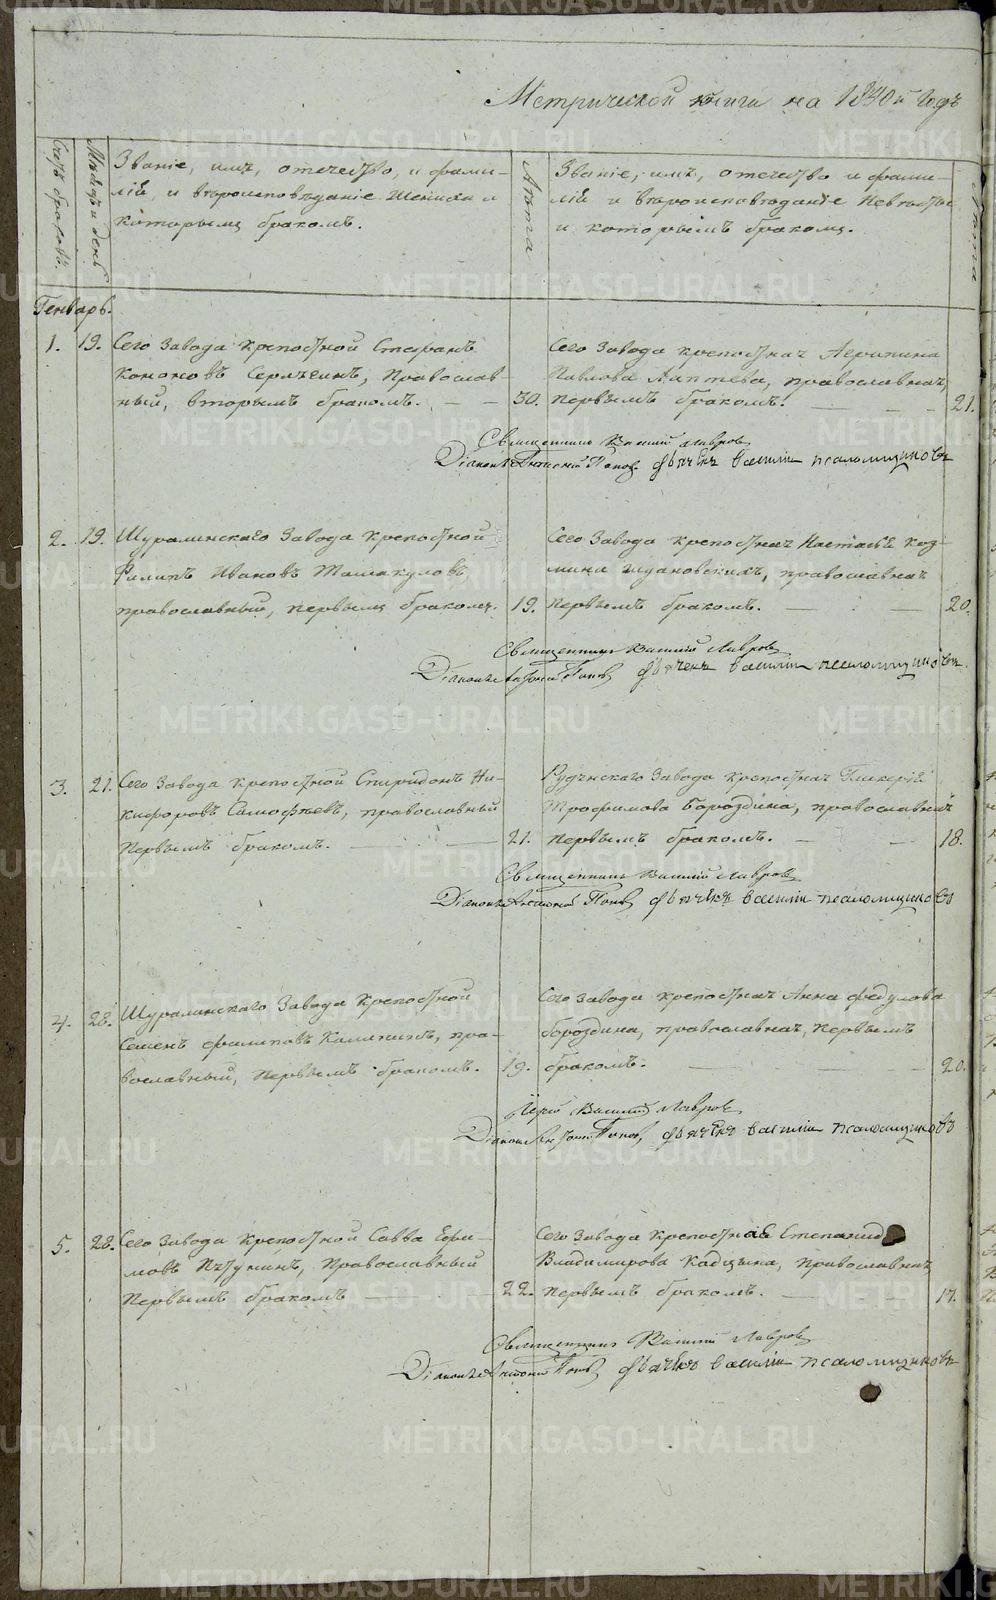 Метрической книги на 1840й годъ
Счетъ браковъ.
Мѣсяцъ и день
Званіе, имя, отечество, и фами-
лія, и вѣроисповѣданіе Жениха и
которымъ бракомъ.
Лѣта
Званіе, имя, отечество и фами-
лія и вѣроисповѣданіе Невѣсты
и которымъ бракомъ.
Лѣта
Генварь.
1. 19. Сего Завода крѣпостной Стефанъ
Кононовъ, Православ-
ный, вторымъ бракомъ. 30.
Сего Завода крѣпостная Агрипина
Павлова Лаптева, православная,
первымъ бракомъ. 21.
Священникъ Василій Лавровъ
Діаконъ Антоній Поповъ дьячекъ василій псаломщиковъ
2. 19. Шуралинскаго Завода крѣпостной
Филипъ Ивановъ Ташкуловъ,
православный, первымъ бракомъ. 19.
Сего Завода крѣпостная Настасья Коз-
мина, православная
первымъ бракомъ. 20.
Священникъ Василій Лавровъ
Діаконъ Антоній Поповъ дьячекъ василій псаломщиковъ
3. 21. Сего Завода крѣпостной Спиридонъ Ни-
кифоровъ Самофѣевъ, православный
первымъ бракомъ. 21.
Рудянскаго Завода крѣпостная Гликерія
Трофимова Бороздина, православная
первымъ бракомъ. 18.
Священникъ Василій Лавровъ
Діаконъ Антоній Поповъ дьячекъ василій псаломщиковъ
4. 28. Шуралинскаго Завода крѣпостной
Семенъ Филиповъ Калининъ, пра-
вославный, первымъ бракомъ. 19.
Сего завода крѣпостная Анна Федулова
Бороздина, православная, первымъ
бракомъ. 20.
Іерей Василій Лавровъ
Діаконъ Антоній Поповъ, дьячекъ василій псаломщиковъ
5. 28. Сего Завода крѣпостной Савва Ефи-
мовъ Пятунинъ, Православный
первымъ бракомъ 22.
Сего Завода крѣпостная Степанида
Владимирова, православная,
первымъ бракомъ. 17.
Священникъ Василій Лавровъ
Діаконъ Антоній Поповъ дьячекъ василій псаломщиковъ
METRIKI.GASO-URAL.RU